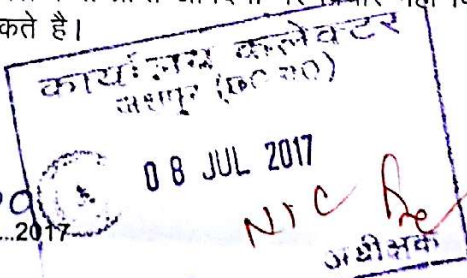 कते है।
कार्यालय कलेक्टर
जशपुर (छ0ग0)
08 JUL 2017
...2017
NIC
अधीक्षक